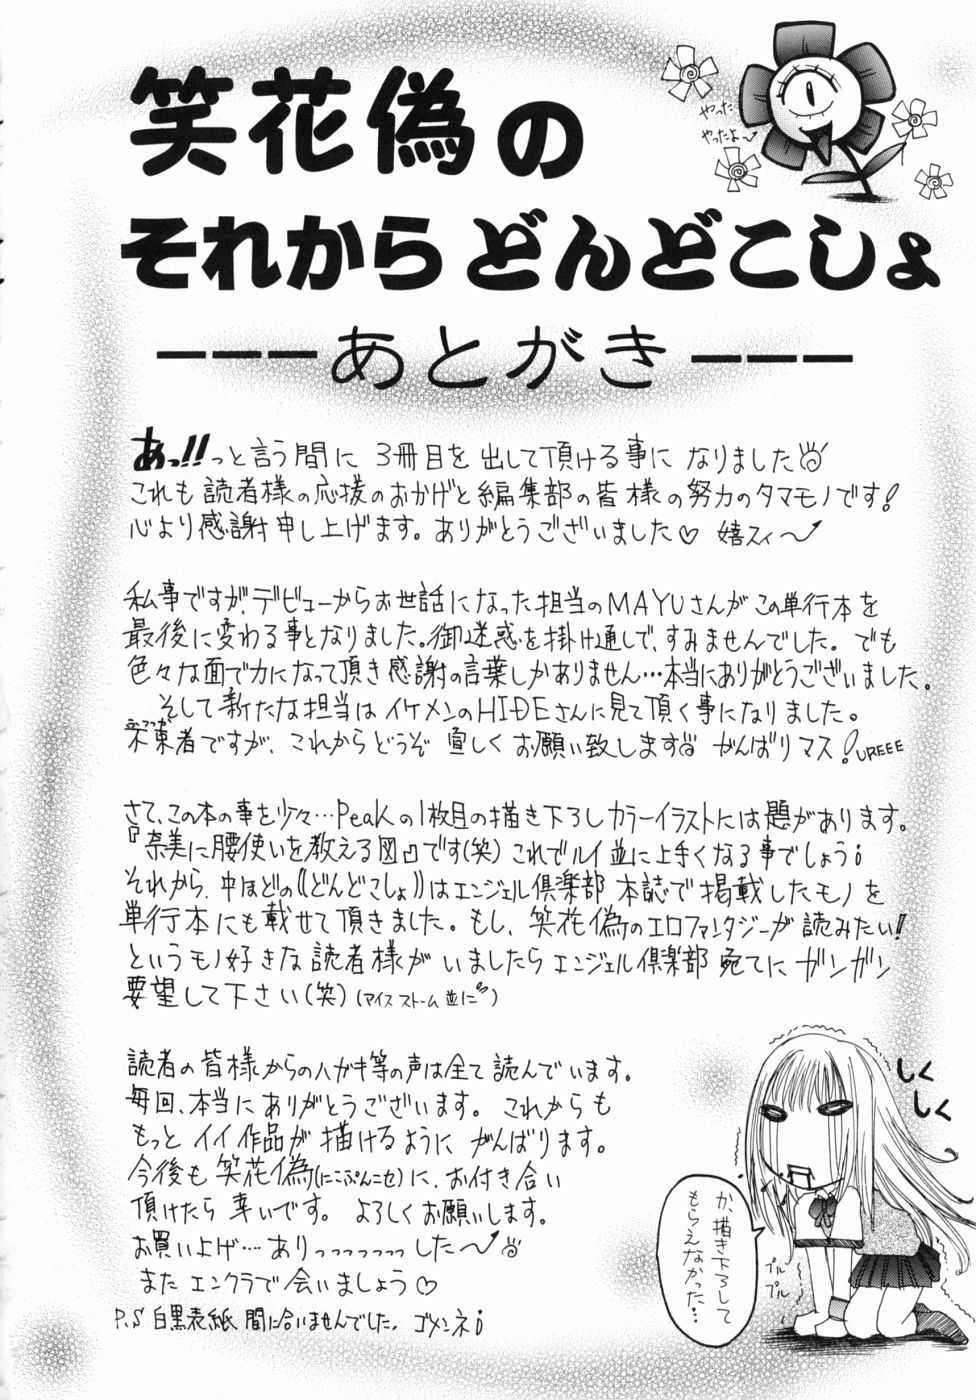 笑花偽の
それからどんどこしょ
やった
やったよ〜
---あとがき---
あっ!!っと言う間に 3冊目を出して頂ける事に なりました
これも読者様の応援のおかげと編集部の皆様の努力のタマモノです!
心より感謝申し上げます。ありがとうございました♡ 嬉スィ〜
私事ですが、デビューからお世話になった担当のMAYUさんがこの単行本を
最後に変わる事となりました。御迷惑を掛け通しで、すみませんでした。でも
色々な面で力になって頂き感謝の言葉しかありません…本当にありがとうございました。
そして新たな担当はイケメンのHIDEさんに見て頂く事になりました。
不束者ですが、これからどうぞ 宜しくお願い致します がんばりマス!UREEE
さて、この本の事を少々…Peakの1枚目の描き下ろしカラーイラストには題があります。
『奈美に腰使いを教える図』です(笑) これでルイ並に上手くなる事でしょう!
それから、中ほどの《どんどこしょ》はエンジェル倶楽部 本誌で掲載したモノを
単行本にも載せて頂きました。もし、笑花偽のエロファンタジーが読みたい!!
というモノ好きな読者様がいましたらエンジェル倶楽部 宛てにガンガン
要望して下さい(笑)(アイス ストーム 並に)
読者の皆様からのハガキ等の声は全て読んでいます。
毎回、本当にありがとうございます。これからも
もっとイイ作品が描けるようにがんばります。
今後も笑花偽(にこぷんニセ)に、お付き合い
頂けたら幸いです。よろしくお願いします。
お買い上げ…ありっっっっっっした〜
またエンクラで会いましょう♡
P.S 白黒表紙 間に合いませんでした。ゴメンネ!
しく
しく
か、描き下ろして
もらえなかった…
プル
プル